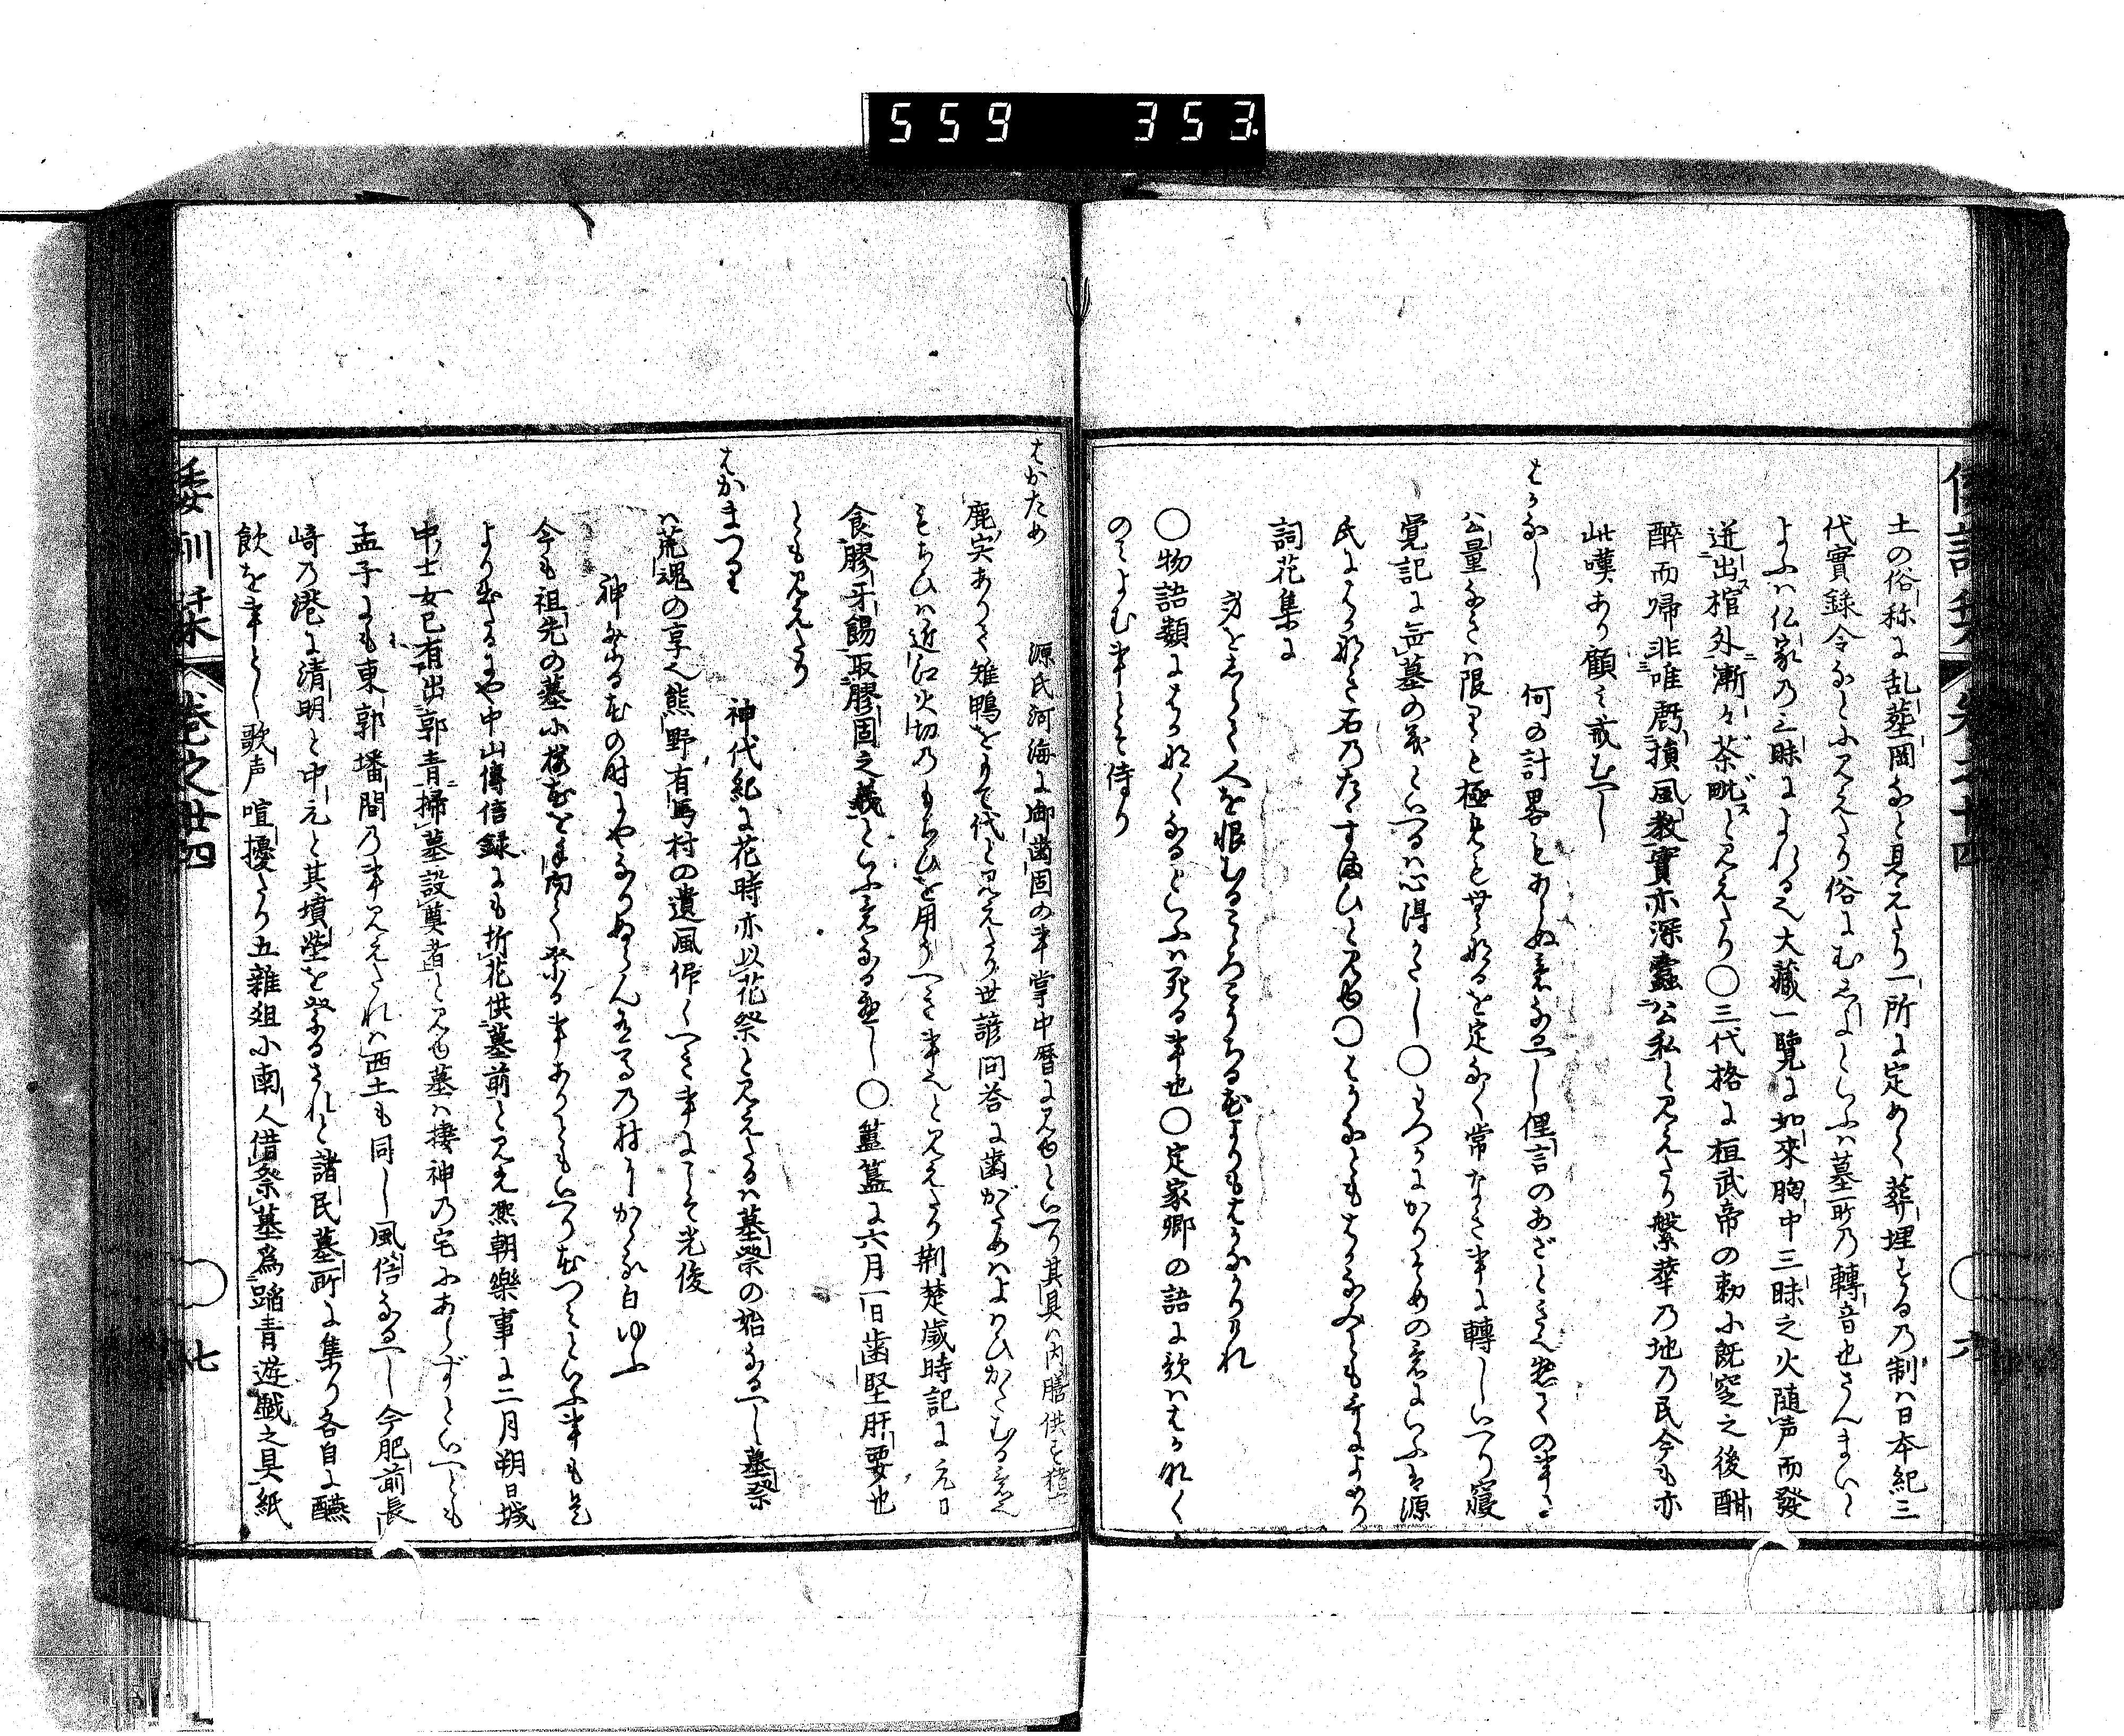 559 353
土の俗称に乱葬岡なと見えたり一所に定めて葬埋するの制ハ日本紀三
代實録令なとに見えたり俗にむしよといふハ墓所乃轉音也さんまいと
よふハ仏家乃三昧によれる也大藏一覽に如來胸中三昧之火随声而發
迸出棺外漸々茶毗と見えたり〇三代格に桓武帝の勅に既窆之後酣
醉而帰非唯虧損風教實亦深蠧公私と見えたり繁華乃地乃民今も亦
此嘆あり顧み戒むへし
はかなし 何の計畧もあらぬ意なるへし俚言のあざときも
ハ公量なきハ限りも極もなきを定なく常なき事に轉しいへり寝
覚記に無墓の義といへるハ心得かたし〇はつかにかりそめの意にいふは源
氏にはかなき石乃たゝすまひと見ゆ〇はかなともはかなみとも哥によめり
詞花集に
身をしらて人を恨むるこゝろこそちる花よりもはかなかりけれ
〇物語類にはかなくなるといふハ死る事也〇定家卿の語に歌ハはかなく
のみよむ事とそ侍り
はがため 源氏河海に御歯固の事掌中暦に見ゆといへり其具ハ内膳供之猪
鹿宍ありて雉鴨をもて代と見えたり世諺問答に歯がためハよハひかたむる意也
もちひハ近江火切乃もちひを用うへき事也と見えたり荊楚歳時記に元日
食膠牙餳取膠固之義といふ意なるへし〇簠簋に六月一日歯堅肝要也
とも見えたり
はかまつり 神代紀に花時亦以花祭と見えたるハ墓祭の始なるへし墓祭
ハ荒魂の享也熊野有馬村の遺風作くへき事にこそ光俊
神祭る花の时にやなりぬらん有馬乃村にかゝる白ゆふ
今も祖先の墓に櫻花を手向て祭る事ありともいへり花つみといふ事も是
より起るにや中山傳信録にも折花供墓前と見え燕朝樂事に二月朔日城
中士女已有出郭青掃墓設奠者と見ゆ墓ハ棲神乃宅にあらずといへとも
孟子にも東郭墦間乃事見えたれハ西土も同し風俗なるへし今肥前長
﨑乃港に清明と中元と其墳塋を祭るされと諸民墓所に集り各自に醼
飲を事とし歌声喧擾たり五雜爼に南人借祭墓爲踏青遊戲之具紙
倭訓栞 卷之廿四 七